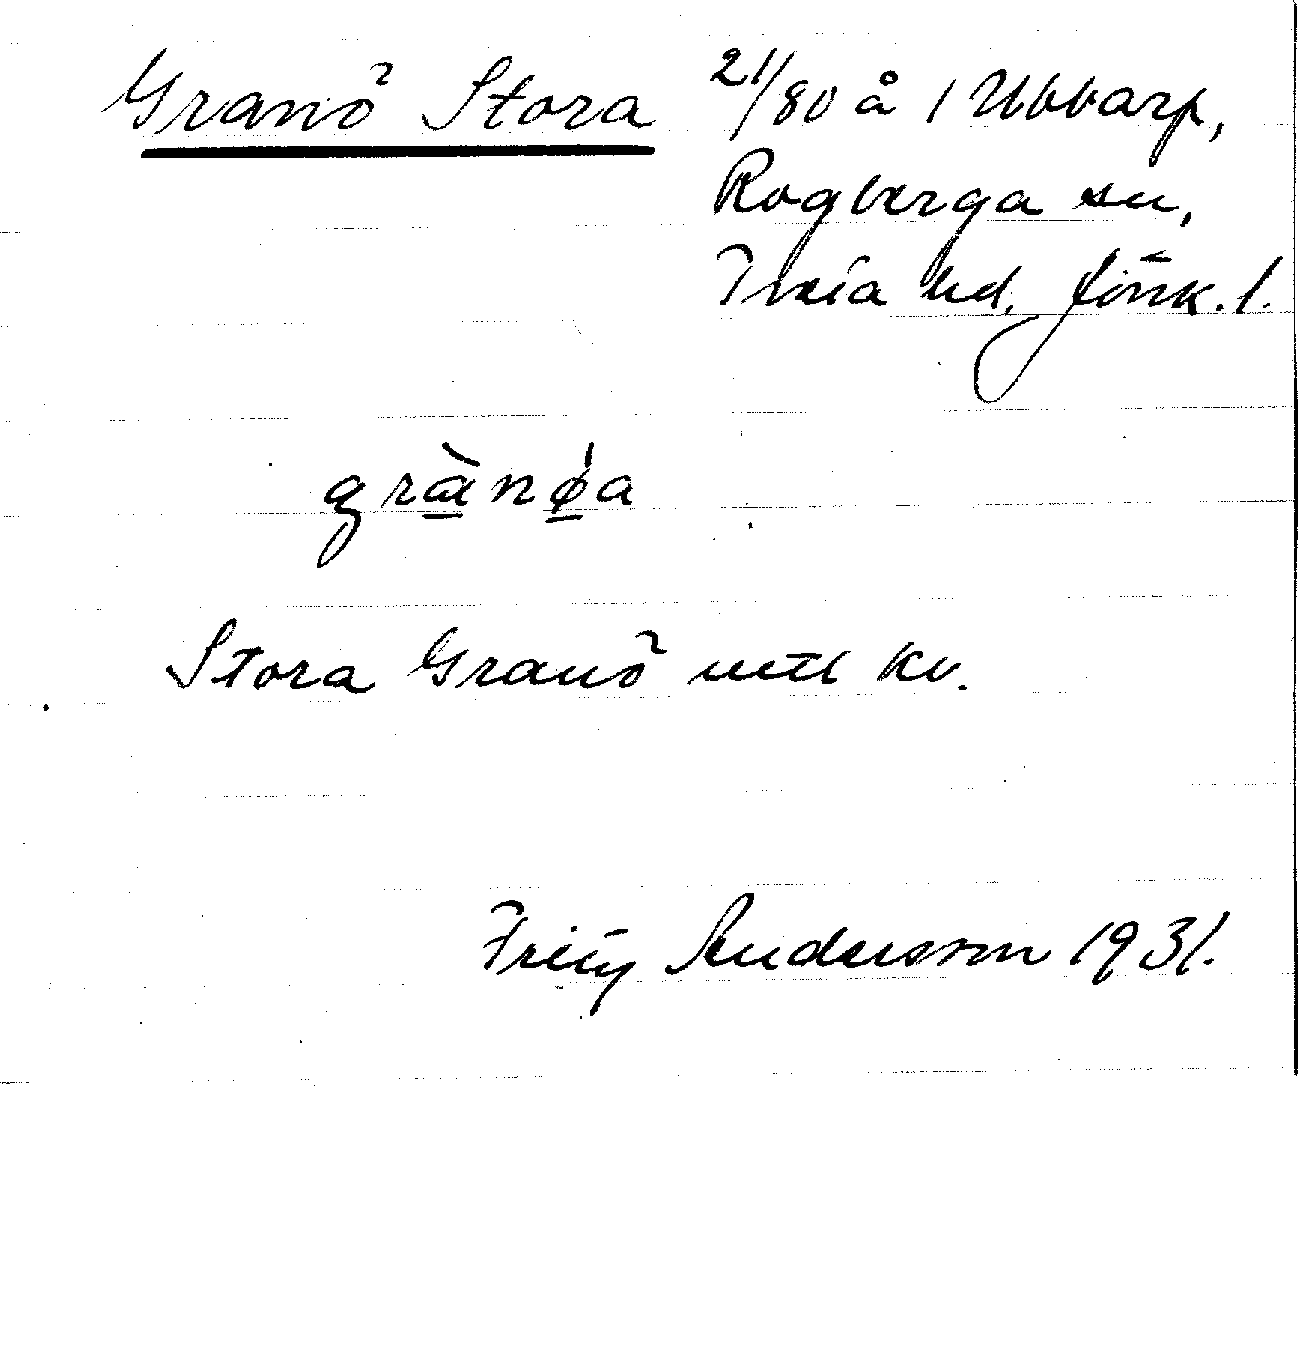 Granö Stora 21/80 å 1 Ubbarp,
Rogberga sn,
Tveta hd, Jönk. l.
grànǿa
Stora Granö utt kv.
Fritz Andersson 1931.